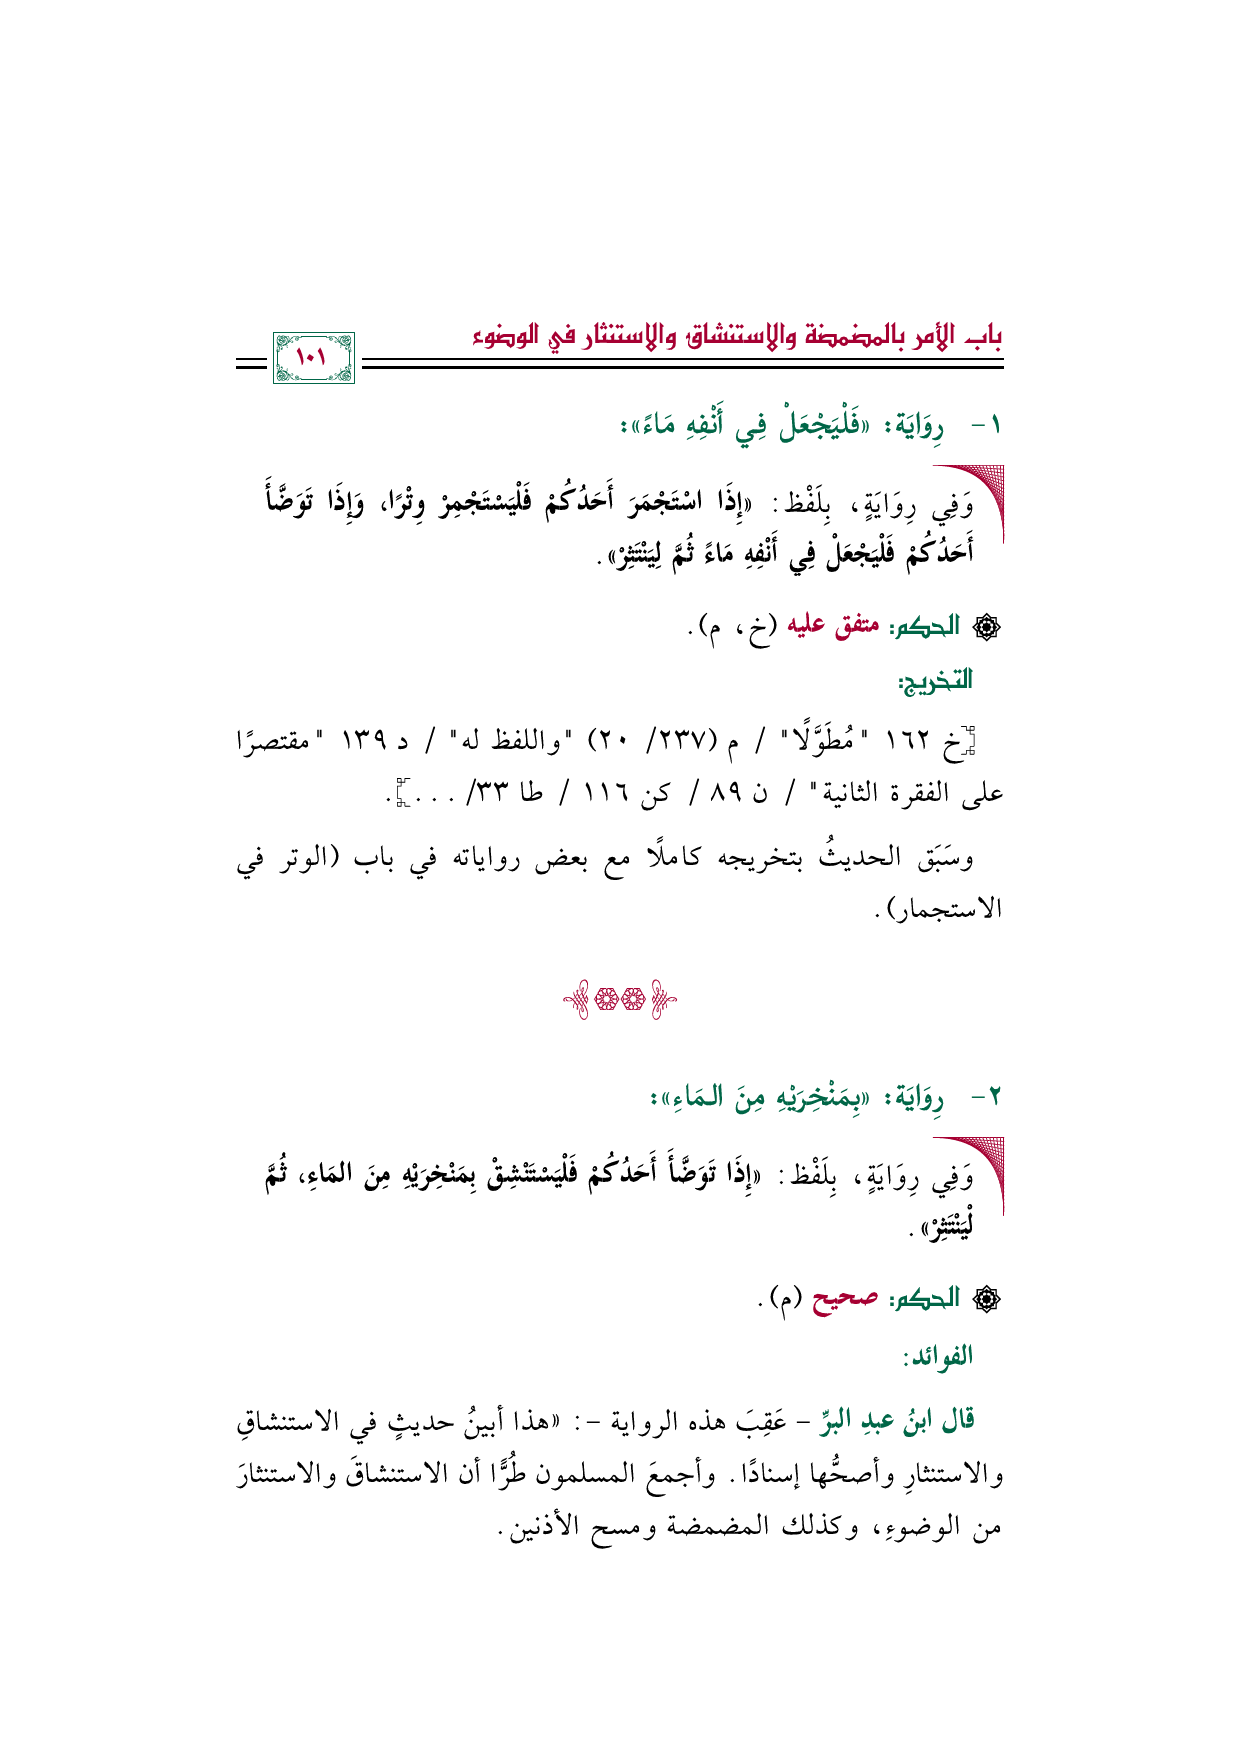 باب الأمر بالمضمضة والاستنشاق والاستنثار في الوضوء
١٠١
١- رِوَايَة: «فَلْيَجْعَلْ فِي أَنْفِهِ مَاءً»:
وَفِي رِوَايَةٍ، بِلَفْظ: «إِذَا اسْتَجْمَرَ أَحَدُكُمْ فَلْيَسْتَجْمِرْ وِتْرًا، وَإِذَا تَوَضَّأَ
أَحَدُكُمْ فَلْيَجْعَلْ فِي أَنْفِهِ مَاءً ثُمَّ لِيَنْتَثِرْ».
الحكم: متفق عليه (خ، م).
التخريج:
[خ ١٦٢ "مُطَوَّلًا" / م (٢٣٧/ ٢٠) "واللفظ له" / د ١٣٩ "مقتصرًا
على الفقرة الثانية" / ن ٨٩ / كن ١١٦ / طا ٣٣/ ...].
وسَبَق الحديثُ بتخريجه كاملًا مع بعض رواياته في باب (الوتر في
الاستجمار).
٢- رِوَايَة: «بِمَنْخِرَيْهِ مِنَ الـمَاءِ»:
وَفِي رِوَايَةٍ، بِلَفْظ: «إِذَا تَوَضَّأَ أَحَدُكُمْ فَلْيَسْتَنْشِقْ بِمَنْخِرَيْهِ مِنَ المَاءِ، ثُمَّ
لْيَنْتَثِرْ».
الحكم: صحيح (م).
الفوائد:
قال ابنُ عبدِ البرِّ - عَقِبَ هذه الرواية -: «هذا أبينُ حديثٍ في الاستنشاقِ
والاستنثارِ وأصحُّها إسنادًا. وأجمعَ المسلمون طُرًّا أن الاستنشاقَ والاستنثارَ
من الوضوءِ، وكذلك المضمضة ومسح الأذنين.